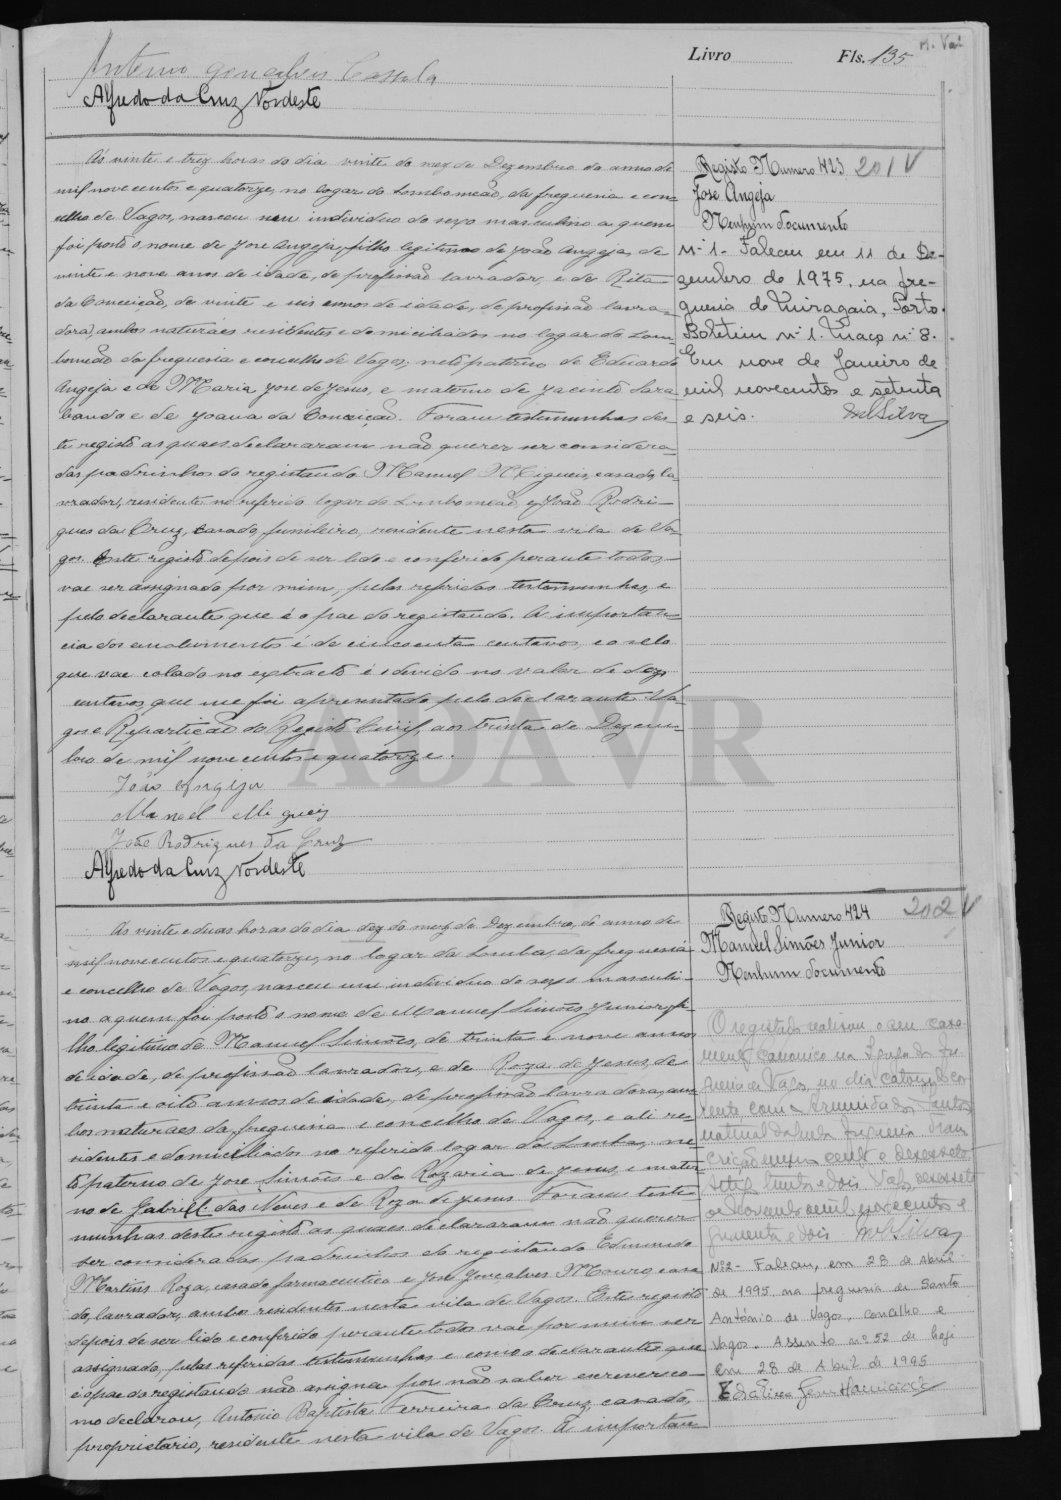 Livro Fls. 135
Antonio Gonçalves
Alfredo da Cruz Nordeste
Registo Numero 423 201 V
José Angeja
Nenhum documento
Nº 1 - Faleceu em 11 de De-
zembro de 1975, na fre-
guesia de Miragaia, Porto.
Boletim nº 1. Maço nº 8.
Em nove de Janeiro de
mil novecentos e setenta
e seis. MSilva
Ás vinte e trez horas do dia vinte do mez de Dezembro do anno de
mil nove centos e quatorze, no logar do Lombomeão, da freguesia e con-
celho de Vagos, nasceu um individuo do sexo masculino a quem
foi posto o nome de José Angeja, filho legitimo de João Angeja, de
vinte e nove anos de idade, de profissão lavrador, e de Rita
da Conceição, de vinte e seis annos de idade, de profissão lavra-
dora, ambos naturaes residentes e domiciliados no logar do Lom-
bomeão da freguesia e concelho de Vagos, neto paterno de Eduardo
Angeja e de Maria José de Jesus, e materno de Jacinto Sara-
banda e de Joana da Conceição. Foram testemunhas des-
te registo as quaes declararam não querer ser considera-
das padrinhos do registando Manuel Migueis, casado, la-
vrador, residente no referido logar do Lombomeão, e João Rodri-
gues da Cruz, casado, funileiro, residente nesta vila de Va-
gos. Este registo depois de ser lido e conferido perante todos,
vae ser assignado por mim, pelas referidas testemunhas, e
pelo declarante que é o pae do registando. A importan-
cia dos emolumentos é de cincoenta centavos, e o selo
que vae colado no extracto é devido no valor de dez
centavos que me foi apresentado pelo declarante. Va-
gos e Repartição do Registo Civil, aos trinta de Dezem-
bro de mil nove centos e quatorze.
João Angeja
Manoel Migueis
João Rodrigues da Cruz
Alfredo da Cruz Nordeste
ADAVR
Registo Numero 424 202 V
Manuel Simões Junior
Nenhum documento
O registado realisou o seu casa-
mento canonico na Igreja da fre-
guesia de Vagos, no dia catorze do cor-
rente com
natural da freguesia
mil novecentos e
quarenta e dois. MSilva
Nº 2 - Faleceu, em 28 de abril
de 1995 na freguesia de Santo
António de Vagos, concelho e
Vagos. Assento nº 52 de hoje
Em 28 de Abril de 1995
Ás vinte e duas horas do dia dez do mez de Dezembro, do anno de
mil nove centos e quatorze, no logar da Lomba, da freguesia
e concelho de Vagos, nasceu um individuo do sexo masculi-
no a quem foi posto o nome de Manuel Simões Junior, fi-
lho legitimo de Manuel Simões, de trinta e nove annos
de idade, de profissão lavrador, e de Roza de Jesus, de
trinta e oito annos de idade, de profissão lavradora, am-
bos naturaes da freguesia e concelho de Vagos, e ali re-
sidentes e domiciliados no referido logar da Lomba, ne-
to paterno de José Simões e de Rozaria de Jesus, e mater-
no de Gabriel das Neves e de Roza de Jesus. Foram teste-
munhas deste registo as quaes declararam não querer
ser consideradas padrinhos do registando Edmundo
Martins Roza, casado farmaceutico e José Gonçalves Mouro, casa-
do, lavrador, ambos residentes nesta vila de Vagos. Este registo
depois de ser lido e conferido perante todos vae por mim ser
assignado, pelas referidas testemunhas e como o declarante que
é o pae do registando não assigna por não saber escrever, co-
mo declarou, Antonio Baptista Ferreira da Cruz, casado,
proprietario, residente nesta vila de Vagos. A importan-